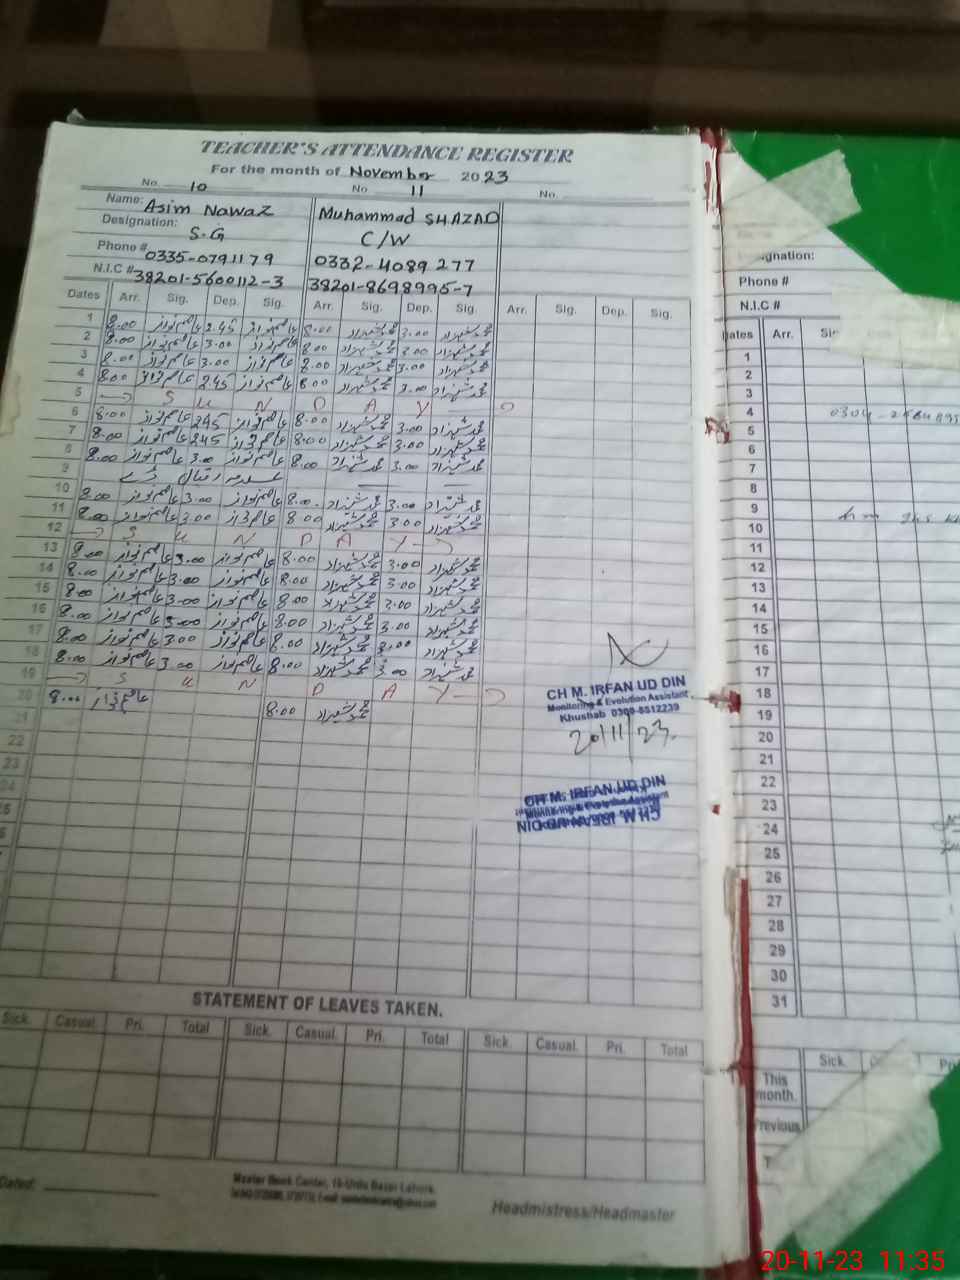 TEACHER'S ATTENDANCE REGISTER
For the month of November 2023
No. 10 No. 11 No.
Name: Asim Nawaz Muhammad SHAZAD
Designation: S.G C/W
Phone # 0335-0791179 0332-4089277
N.I.C # 38201-5600112-3 38201-8698995-7
Dates Arr. Sig. Dep. Sig. Arr. Sig. Dep. Sig. Arr. Sig. Dep. Sig.
1 8.00 عاصم نواز 2.45 عاصم نواز 8.00 محمد شہزاد 3.00 محمد شہزاد
2 8.00 عاصم نواز 3.00 عاصم نواز 8.00 محمد شہزاد 3.00 محمد شہزاد
3 8.00 عاصم نواز 3.00 عاصم نواز 8.00 محمد شہزاد 3.00 محمد شہزاد
4 8.00 عاصم نواز 2.45 عاصم نواز 8.00 محمد شہزاد 3.00 محمد شہزاد
5 S U N D A Y
6 8:00 عاصم نواز 2.45 عاصم نواز 8.00 محمد شہزاد 3.00 محمد شہزاد
7 8.00 عاصم نواز 2.45 عاصم نواز 8:00 محمد شہزاد 3.00 محمد شہزاد
8 8.00 عاصم نواز 3.00 عاصم نواز 8.00 محمد شہزاد 3.00 محمد شہزاد
9 علامہ اقبال ڈے
10 8.00 عاصم نواز 3.00 عاصم نواز 8.00 محمد شہزاد 3.00 محمد شہزاد
11 8.00 عاصم نواز 3.00 عاصم نواز 8.00 محمد شہزاد 3.00 محمد شہزاد
12 S U N D A Y
13 8.00 عاصم نواز 3.00 عاصم نواز 8.00 محمد شہزاد 3.00 محمد شہزاد
14 8.00 عاصم نواز 3.00 عاصم نواز 8.00 محمد شہزاد 3.00 محمد شہزاد
15 8.00 عاصم نواز 3.00 عاصم نواز 8.00 محمد شہزاد 3.00 محمد شہزاد
16 8.00 عاصم نواز 3.00 عاصم نواز 8.00 محمد شہزاد 3.00 محمد شہزاد
17 8.00 عاصم نواز 3.00 عاصم نواز 8.00 محمد شہزاد 3.00 محمد شہزاد
18 8.00 عاصم نواز 3.00 عاصم نواز 8.00 محمد شہزاد 3.00 محمد شہزاد
19 S U N D A Y
20 8.00 عاصم نواز 8.00 محمد شہزاد
21
22
23
24
25
CH M. IRFAN UD DIN
Monitoring & Evolution Assistant
Khushab 0300-8512239
20/11/23.
CH M. IRFAN UD DIN
CH M. IRFAN UD DIN
STATEMENT OF LEAVES TAKEN.
Sick. Casual. Pri. Total Sick. Casual. Pri. Total Sick. Casual. Pri. Total
Dated:
Master Book Center, 19-Urdu Bazar Lahore.
Headmistress/Headmaster
Designation:
Phone #
N.I.C #
Dates Arr.
1
2
3
4
5
6
7
8
9
10
11
12
13
14
15
16
17
18
19
20
21
22
23
24
25
26
27
28
29
30
31
Sick.
This month.
Previous
20-11-23 11:35